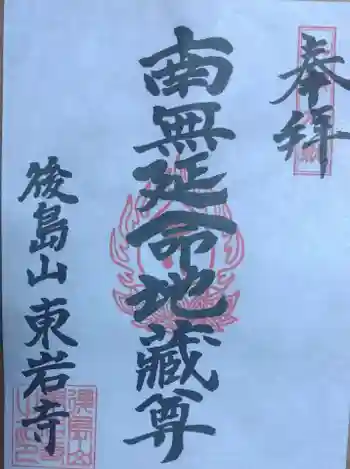 奉拝
南無延命地藏尊
後島山東岩寺